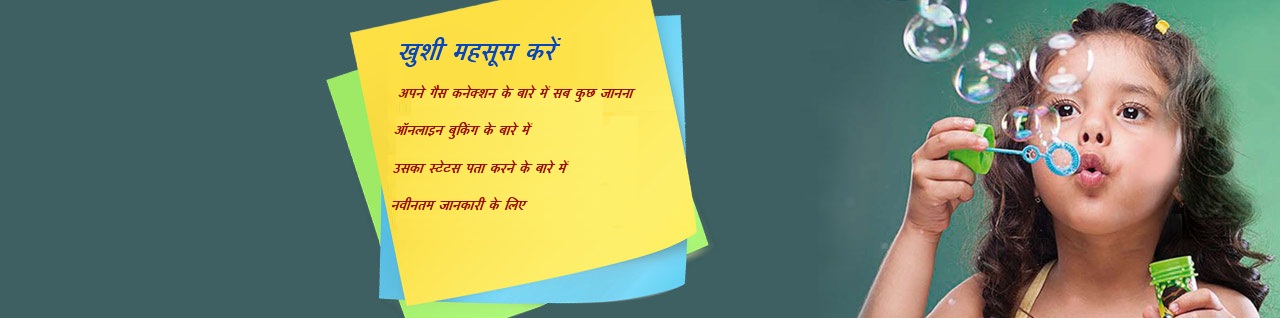 खुशी महसूस करें
अपने गैस कनेक्शन के बारे में सब कुछ जानना
ऑनलाइन बुकिंग के बारे में
उसका स्टेटस पता करने के बारे में
नवीनतम जानकारी के लिए